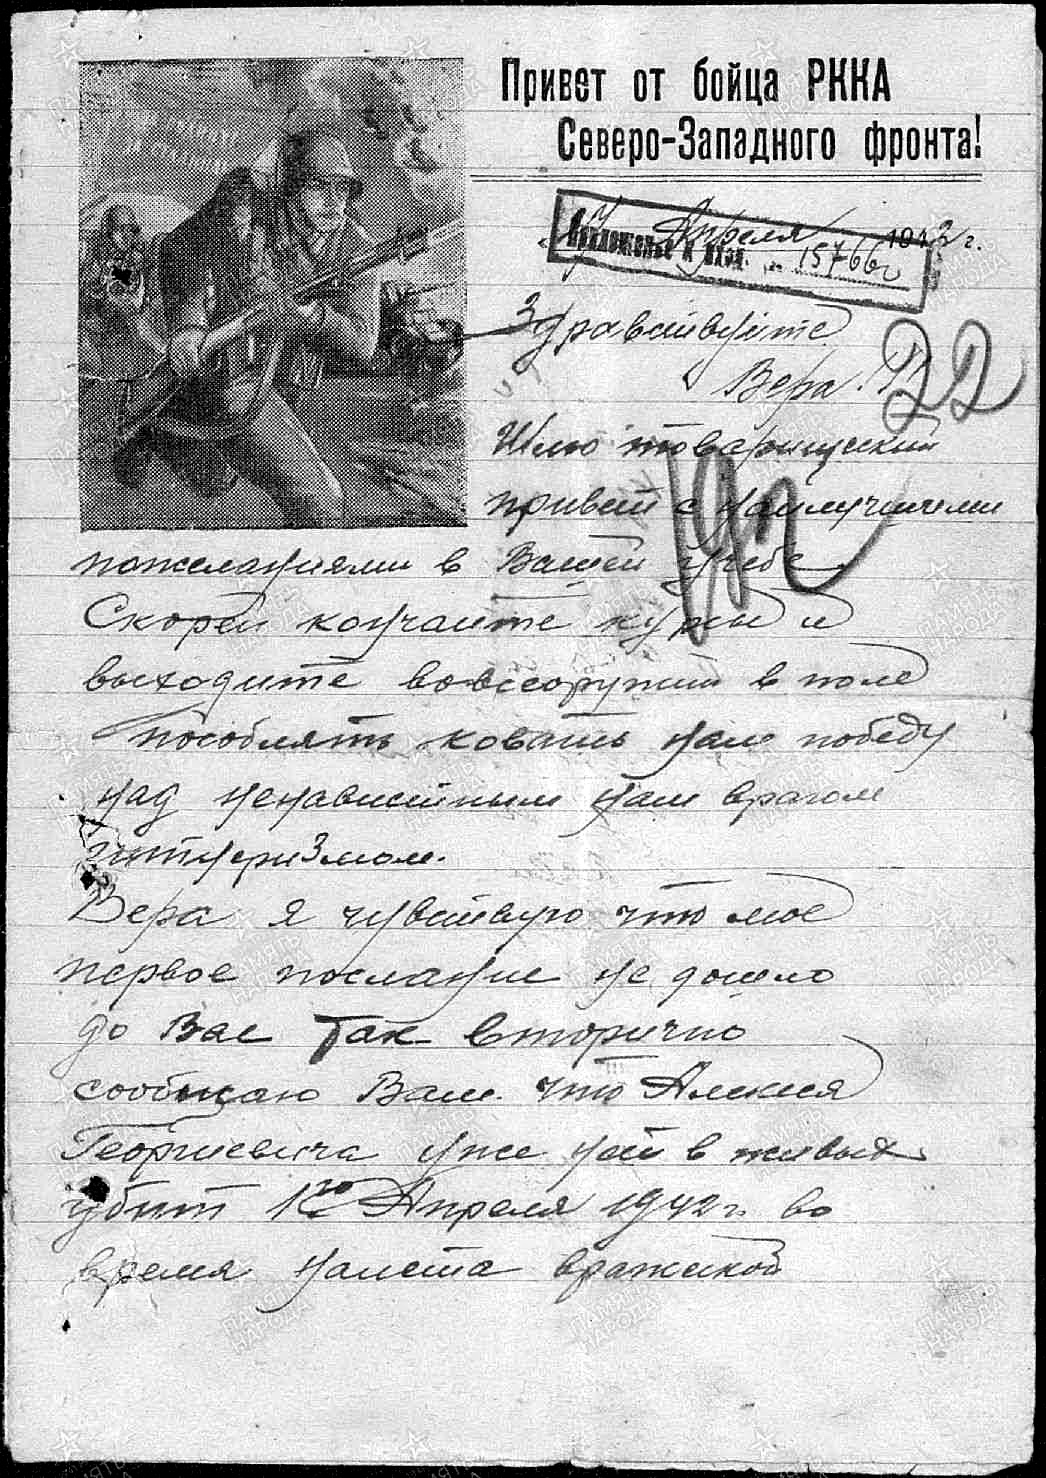 Привет от бойца РККА
Северо-Западного фронта!
Апреля 1942 г.
Приложение к вход. 15766с
Здравствуйте
Вера
22
Шлю товарищеский
привет с наилучшими
пожеланиями в Вашей учебе
Скорей кончайте курсы и
выходите вовсеоружии в поле
пособлять ковать нам победу
над ненавистным нам врагом
гитлеризмом.
Вера я чувствую что мое
первое послание не дошло
до Вас Так вторично
сообщаю Вам что Алексея
Георгиевича уже нет в живых
убит 1го Апреля 1942 г. во
время налета вражеской
ПАМЯТЬ НАРОДА